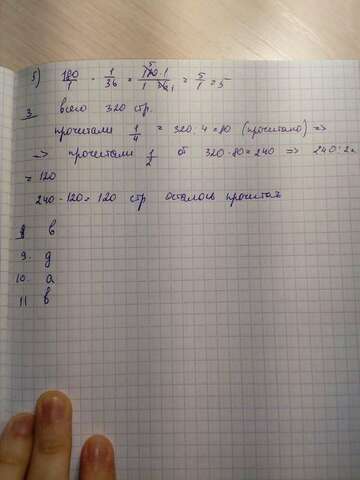 5) 180/1 · 1/36 = 180·1/1 36 = 5/1 = 5
3 всего 320 стр
прочитали 1/4 = 320 : 4 = 80 (прочитано) =>
=> прочитали 1/2 от 320-80=240 => 240:2=
= 120
240-120= 120 стр осталось прочитать
8 в
9. д
10. а
11 в